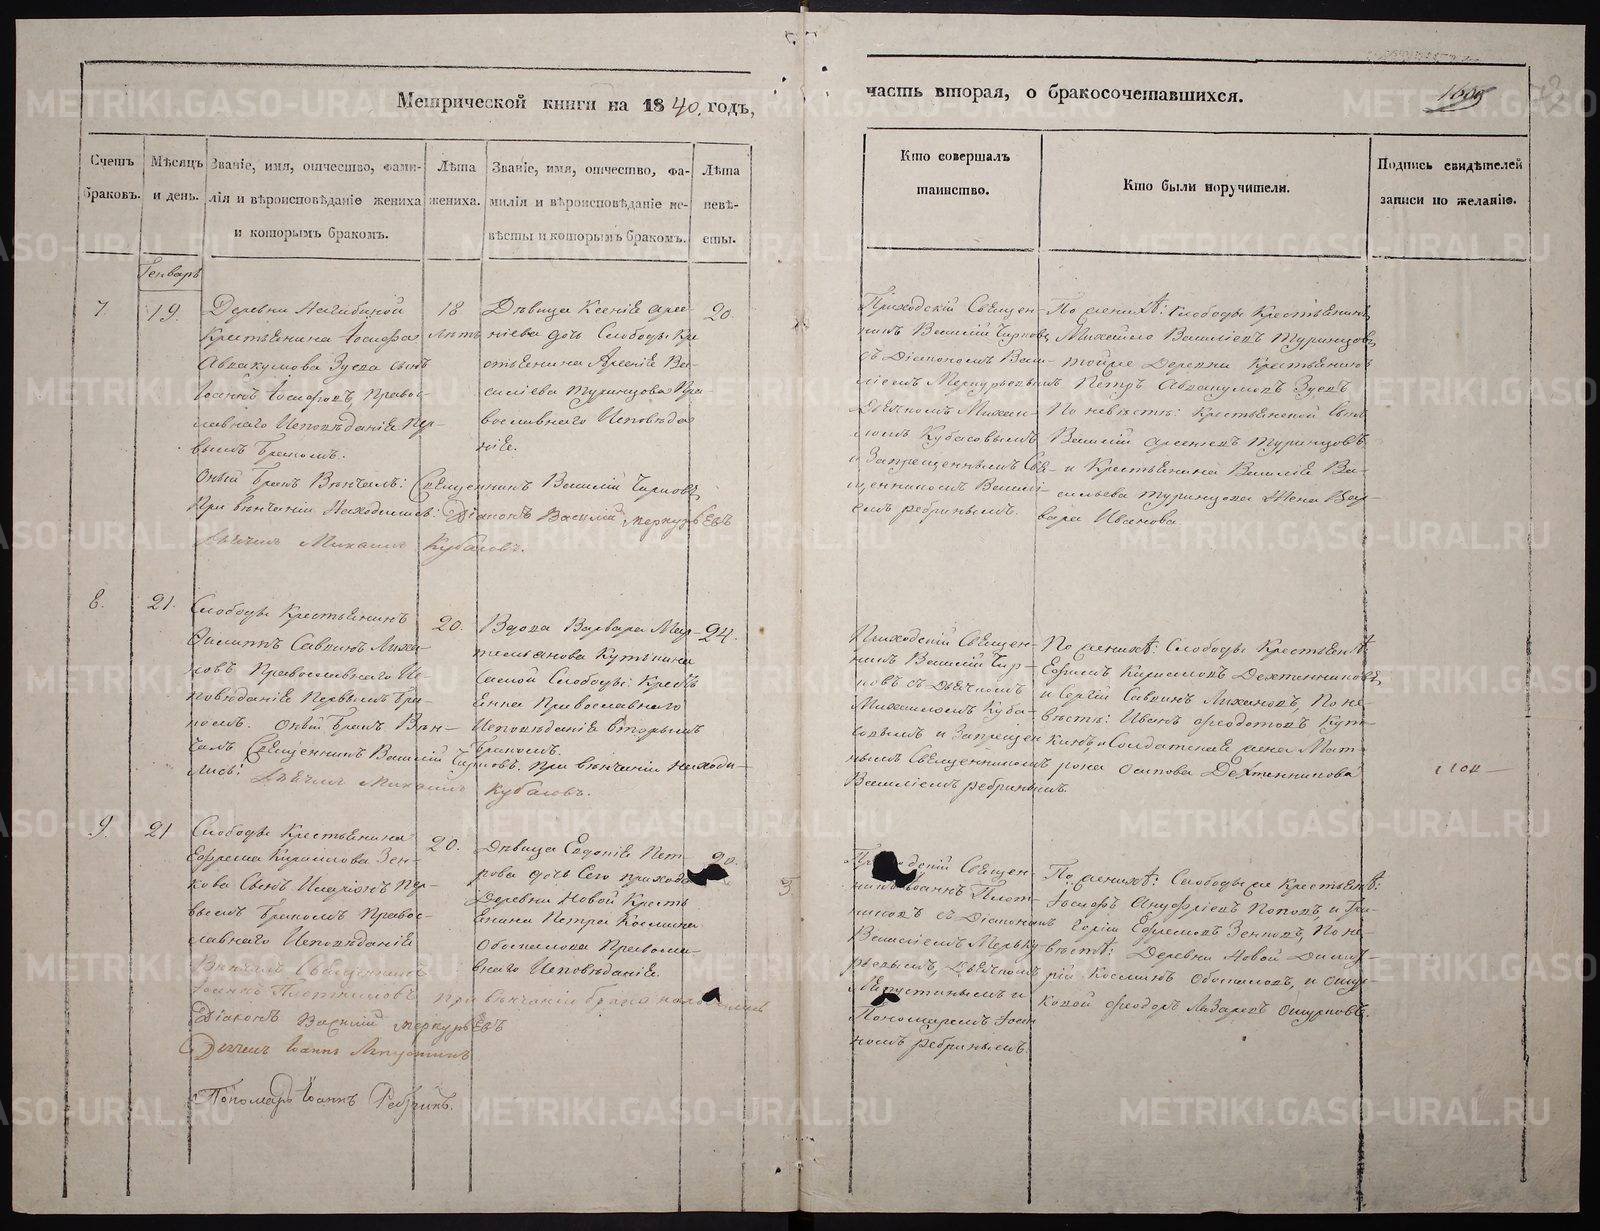 Метрической книги на 1840. годъ,
часть вторая, о бракосочетавшихся.
Счетъ браковъ.
Мѣсяцъ и день.
Званіе, имя, отчество, фами-
лія и вѣроисповѣданіе жениха
и которымъ бракомъ.
Лѣта
жениха.
Званіе, имя, отчество, фа-
милія и вѣроисповѣданіе не-
вѣсты и которымъ бракомъ.
Лѣта
невѣ-
сты.
Кто совершалъ
таинство.
Кто были поручители.
Подпись свидѣтелей
записи по желанію.
Генварь
7
19.
Деревни
Крестьянина Іосифа
Авакумова Зуева сынъ
Іоаннъ Іосифовъ, Правос-
лавнаго Исповѣданія Пер-
вымъ бракомъ.
18
Лѣтъ
Дѣвица Ксенія Арсе-
ніева дочь Слободы Кре
стьянина Арсенія Ва-
силіева Туринцова Пра
вославнаго Исповѣда
нія.
20.
Оный бракъ Вѣнчалъ: Священникъ Василій Чирковъ
При вѣнчаніи Находились: Діаконъ Василій Меркурьевъ
Дьячекъ Михаилъ Кубасовъ.
Приходскій Священ-
никъ Василій Чирковъ
съ Діакономъ Васи-
ліемъ Меркурьевымъ
Дьячкомъ Михаи-
ломъ Кубасовымъ
и Запрещеннымъ Свя-
щенникомъ Василі-
емъ Ребринымъ.
По женихѣ: Слободы Крестьянинъ
Михайло Василіевъ Туринцовъ
тойже Деревни Крестьянинъ
Петръ Авакумовъ Зуевъ
По невѣстѣ: Крестьянской сынъ
Василій Арсеніевъ Туринцовъ
и Крестьянина Василія Ва-
сильева Туринцова Жена Вар-
вара Иванова.
8.
21.
Слободы Крестьянинъ
Филиппъ Саввинъ Лиха-
новъ Православнаго Ис-
повѣданія Первымъ бра-
комъ. Оный бракъ Вѣн-
чалъ Священникъ Василій Чирковъ. При вѣнчаніи Находи-
лись: Дьячекъ Михаилъ Кубасовъ.
20.
Вдова Варвара
Кутькина
Слободы: Кресть
Православнаго
Исповѣданія вторымъ
бракомъ.
24.
Приходскій Священ-
никъ Василій Чир-
ковъ съ Дьячкомъ
Михаиломъ Куба-
совымъ и Запрещен
нымъ Священникомъ
Василіемъ Ребринымъ.
По женихѣ: Слободы Крестьянѣ
Ефимъ Кириловъ Дехтянниковъ
и Сергій Саввинъ Лихановъ, По не-
вѣстѣ: Иванъ Федотовъ Куть-
кинъ, и Солдатская жена Мат-
рона Осипова Дехтянникова
9.
21
Слободы Крестьянина
Ефрема Кирилова Зен-
кова Сынъ Иларіонъ Пер-
вымъ бракомъ Правос-
лавнаго Исповѣданія
Вѣнчалъ Священникъ
Іоаннъ Плотниковъ при вѣнчаніи брака находились
Діаконъ Василій Меркурьевъ
Дьячекъ Іоаннъ Лапустинъ
Пономарь Іоаннъ Ребринъ.
20.
Дѣвица Евдокія Пет-
рова дочь Сего прихода
Деревни Новой Кресть
янина Петра Космина
Обоскалова Правосла-
внаго Исповѣданія
20.
Священ-
никъ Іоаннъ Плот-
никовъ съ Діакономъ
Василіемъ Мерку-
рьевымъ, Дьячкомъ
Лапустинымъ и
Пономаремъ Іоан
номъ Ребринымъ.
По женихѣ: Слободы Крестьянѣ:
Іосифъ Ануфріевъ Поповъ, и Гри-
горій Ефремовъ Зенковъ, По не-
вѣстѣ: Деревни Новой Димит-
рій Косминъ Обоскаловъ, и Ошур-
ковой Феодоръ Лазаревъ Ошурковъ.
METRIKI.GASO-URAL.RU